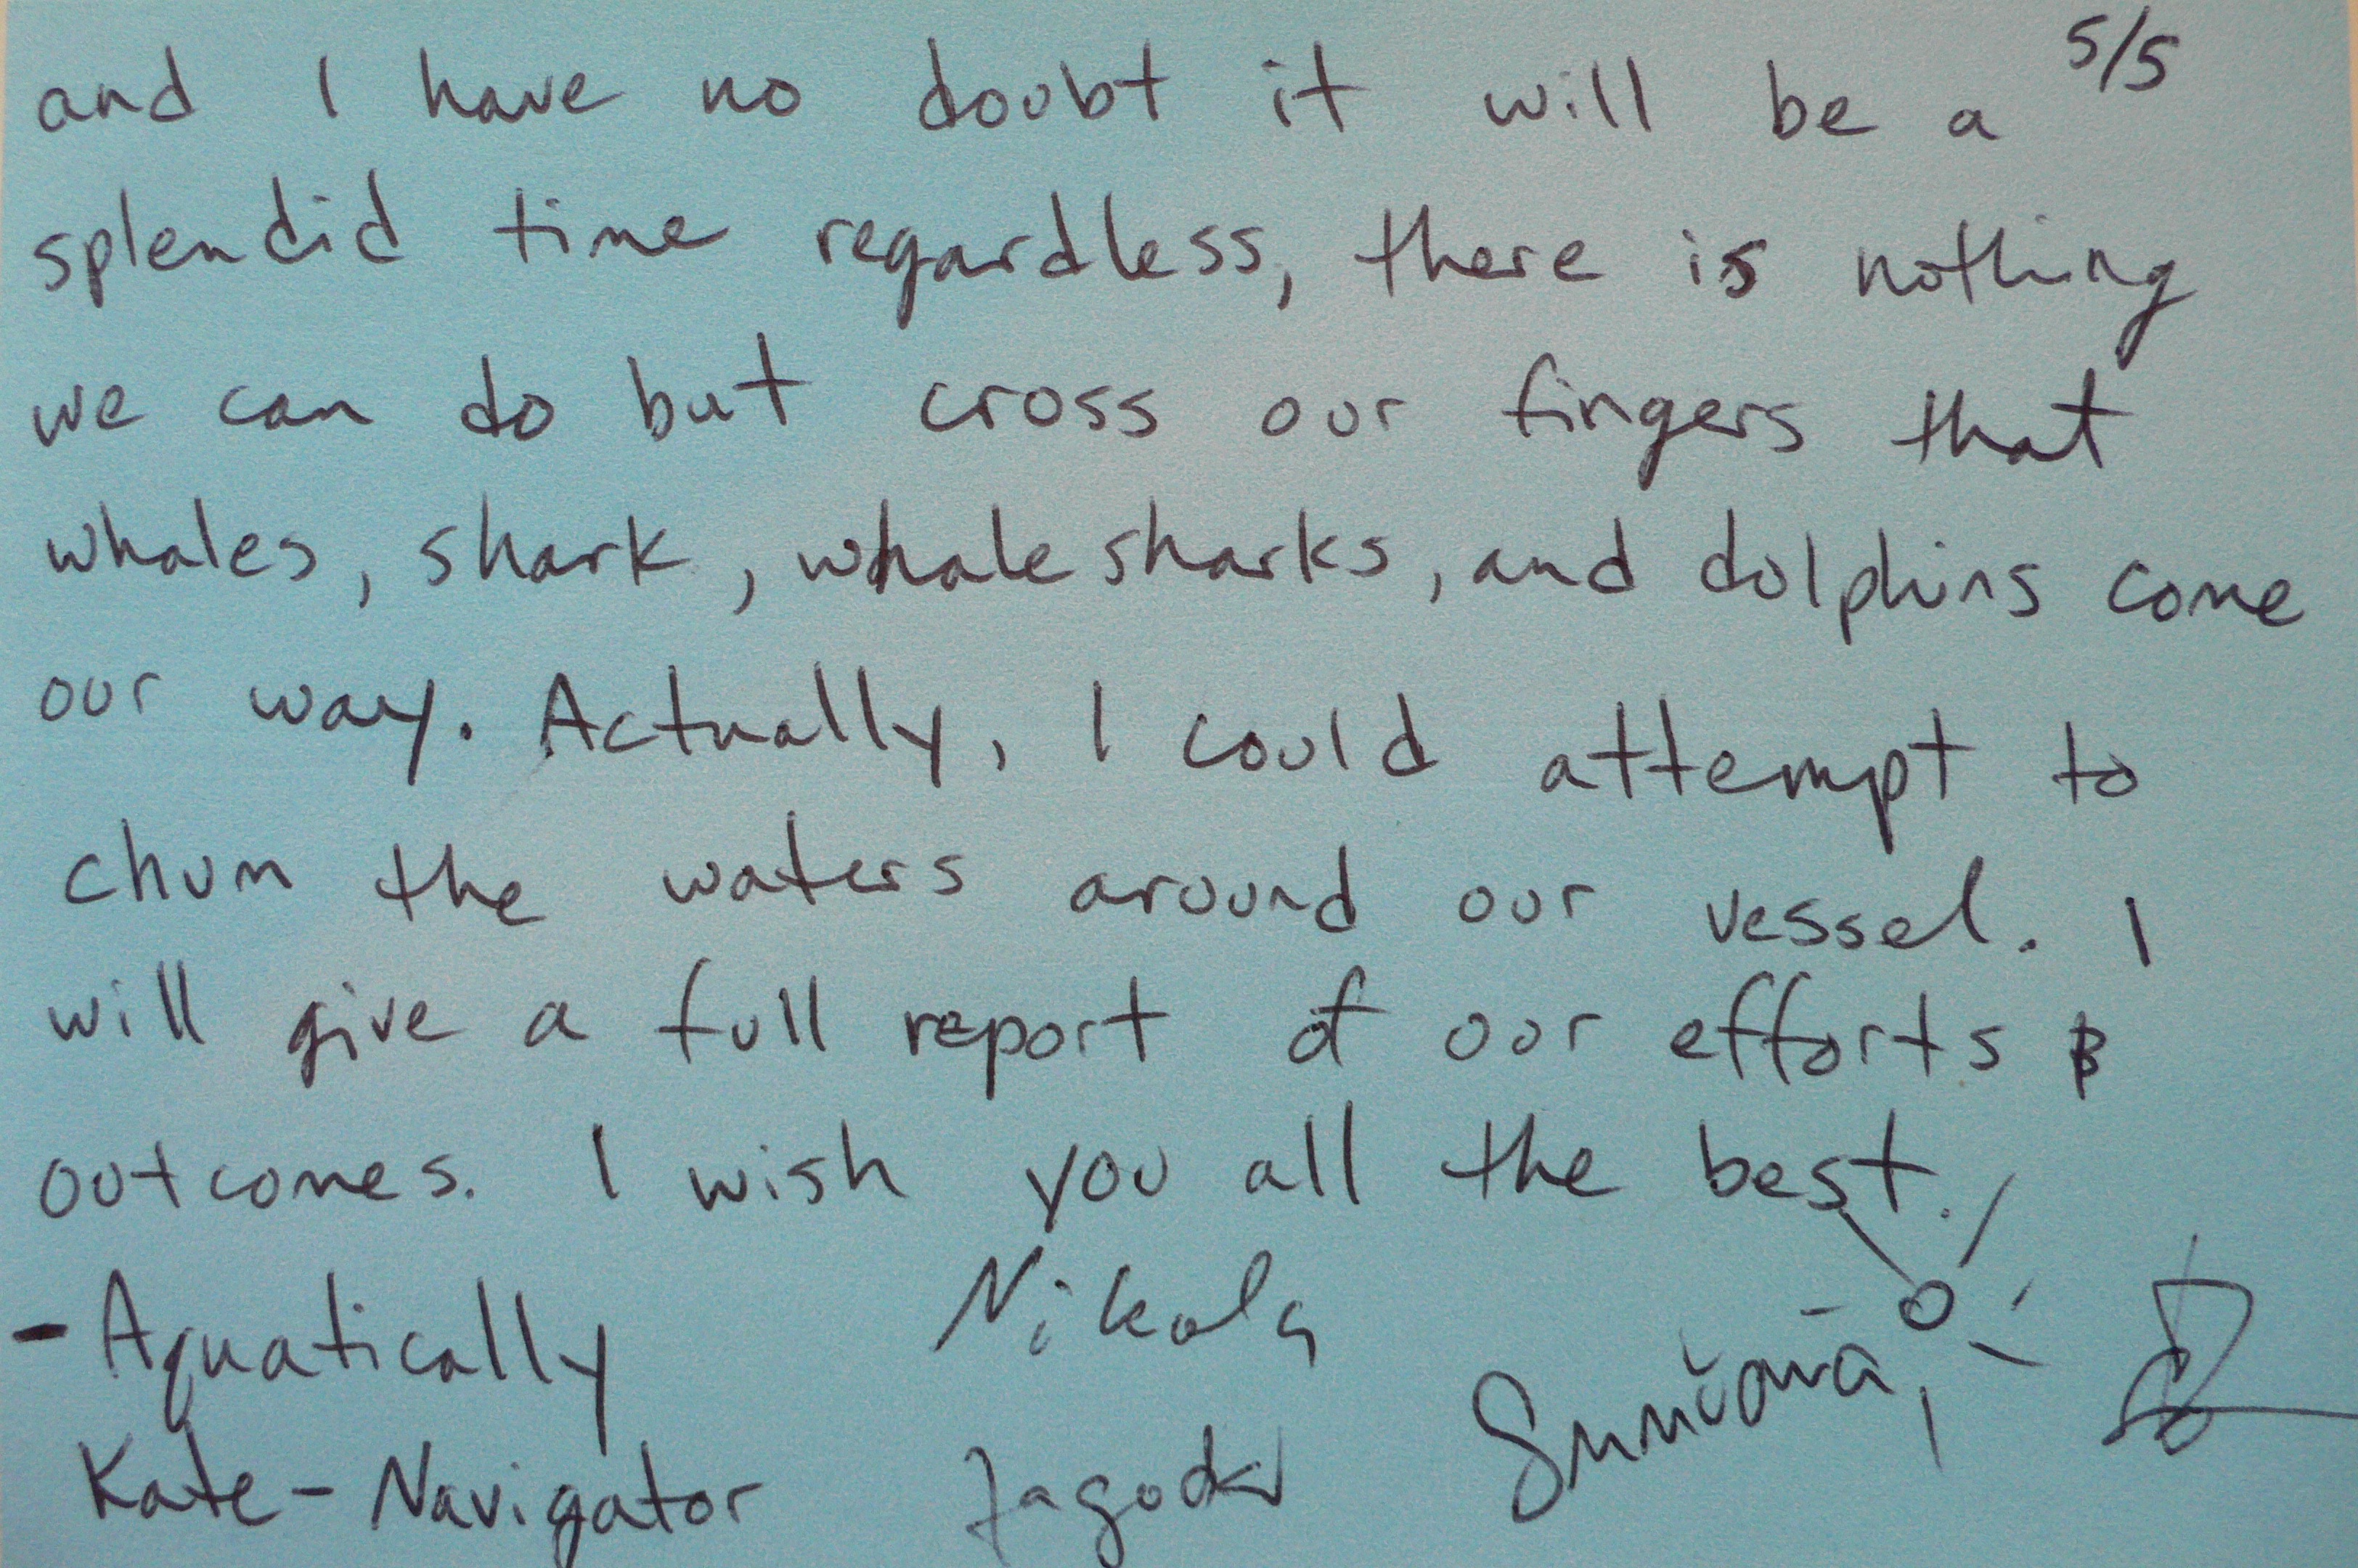 and I have no doubt it will be a 5/5
splendid time regardless, there is nothing
we can do but cross our fingers that
whales, shark, whale sharks, and dolphins come
our way. Actually, I could attempt to
chum the waters around our vessel. I
will give a full report of our efforts &
outcomes. I wish you all the best.
- Aquatically
Kate - Navigator
Nikola
Jagoda
Sunčana